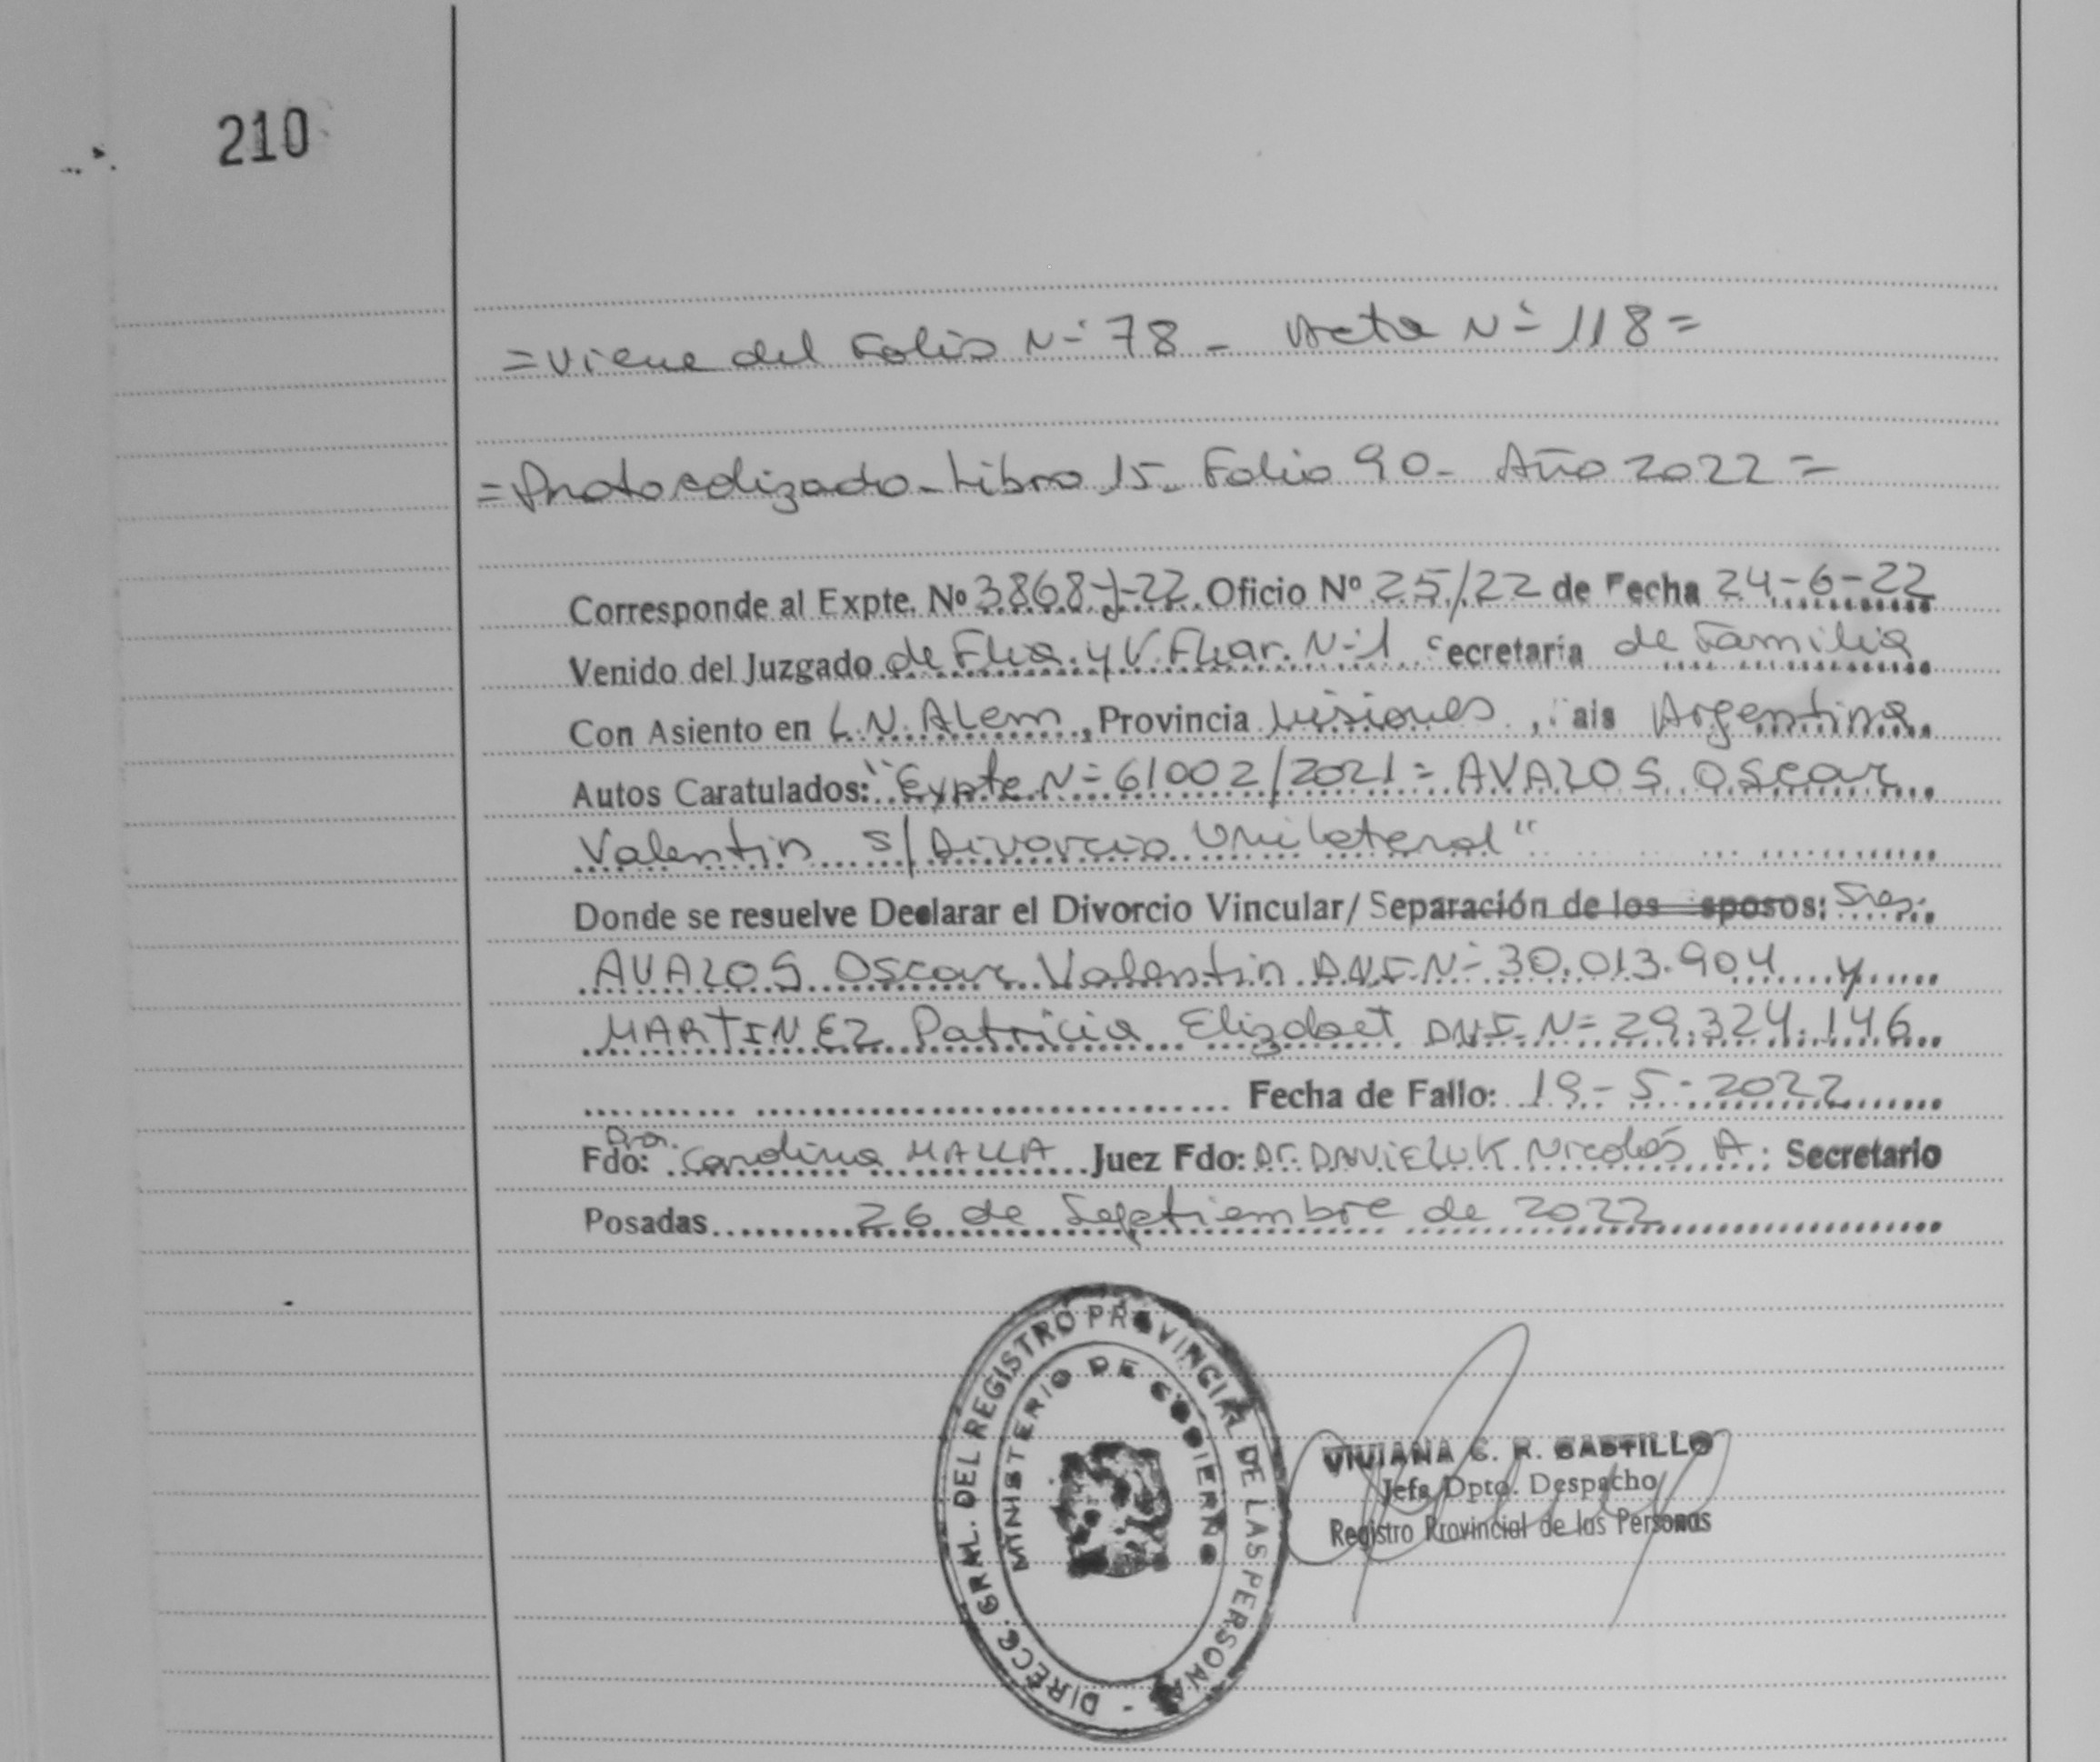 210
=Viene del Folio Nº 78 - Acta Nº 118=
=Protocolizado - Libro 15 - Folio 90 - Año 2022=
Corresponde al Expte. Nº 3868-J-22 Oficio Nº 25/22 de Fecha 24-6-22
Venido del Juzgado de Flia. y V. Fliar. Nº 1 Secretaria de Familia
Con Asiento en L.N. Alem, Provincia Misiones, Pais Argentina
Autos Caratulados: "Expte Nº 61002/2021 = AVALOS Oscar
Valentin s/Divorcio Unilateral"
Donde se resuelve Declarar el Divorcio Vincular/ Separación de los esposos: Sres.
AVALOS Oscar Valentin D.N.I. Nº 30.013.904 y
MARTINEZ Patricia Elizabet DNI Nº 29.324.146
Fecha de Fallo: 19-5-2022
Fdo: Dra. Carolina Juez Fdo: Dr. DANIELUK Nicolás A. Secretario
Posadas 26 de Septiembre de 2022
DIRECC. GRAL. DEL REGISTRO PROVINCIAL DE LAS PERSONAS -
MINISTERIO DE GOBIERNO
VIVIANA C. R. CASTILLO
Jefa Dpto. Despacho
Registro Provincial de las Personas